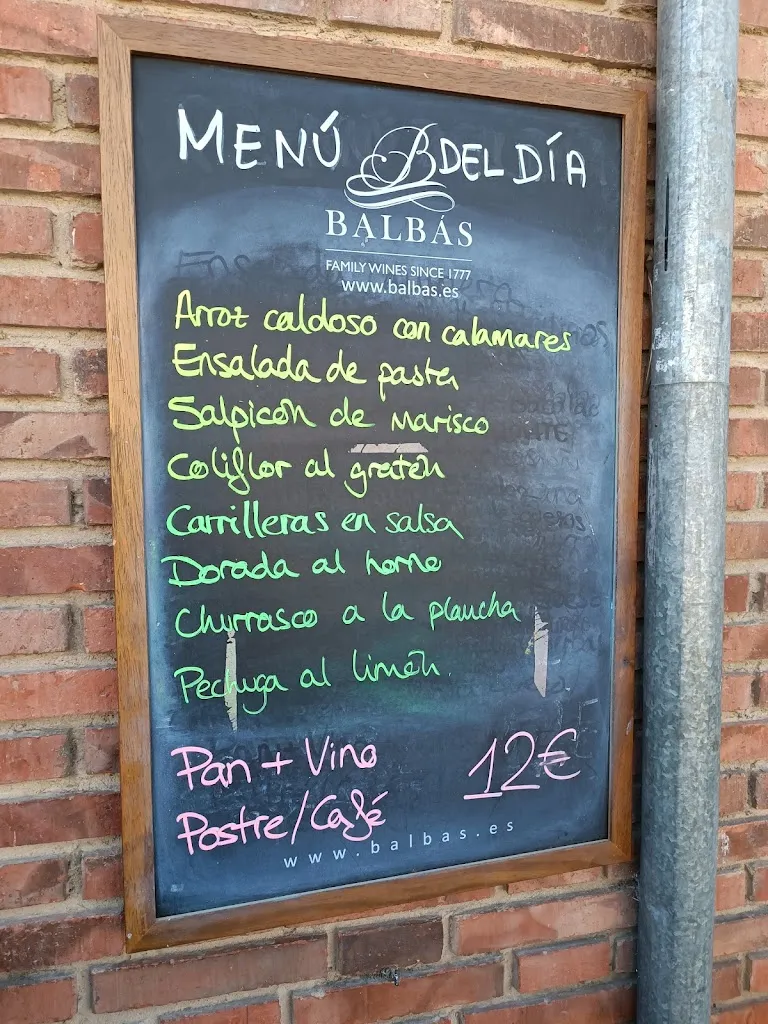 MENÚ B DEL DÍA
BALBÁS
FAMILY WINES SINCE 1777
www.balbas.es
Arroz caldoso con calamares
Ensalada de pasta
Salpicón de marisco
Coliflor al gratén
Carrilleras en salsa
Dorada al horno
Churrasco a la plancha
Pechuga al limón
Pan + Vino
12€
Postre/Café
www.balbas.es